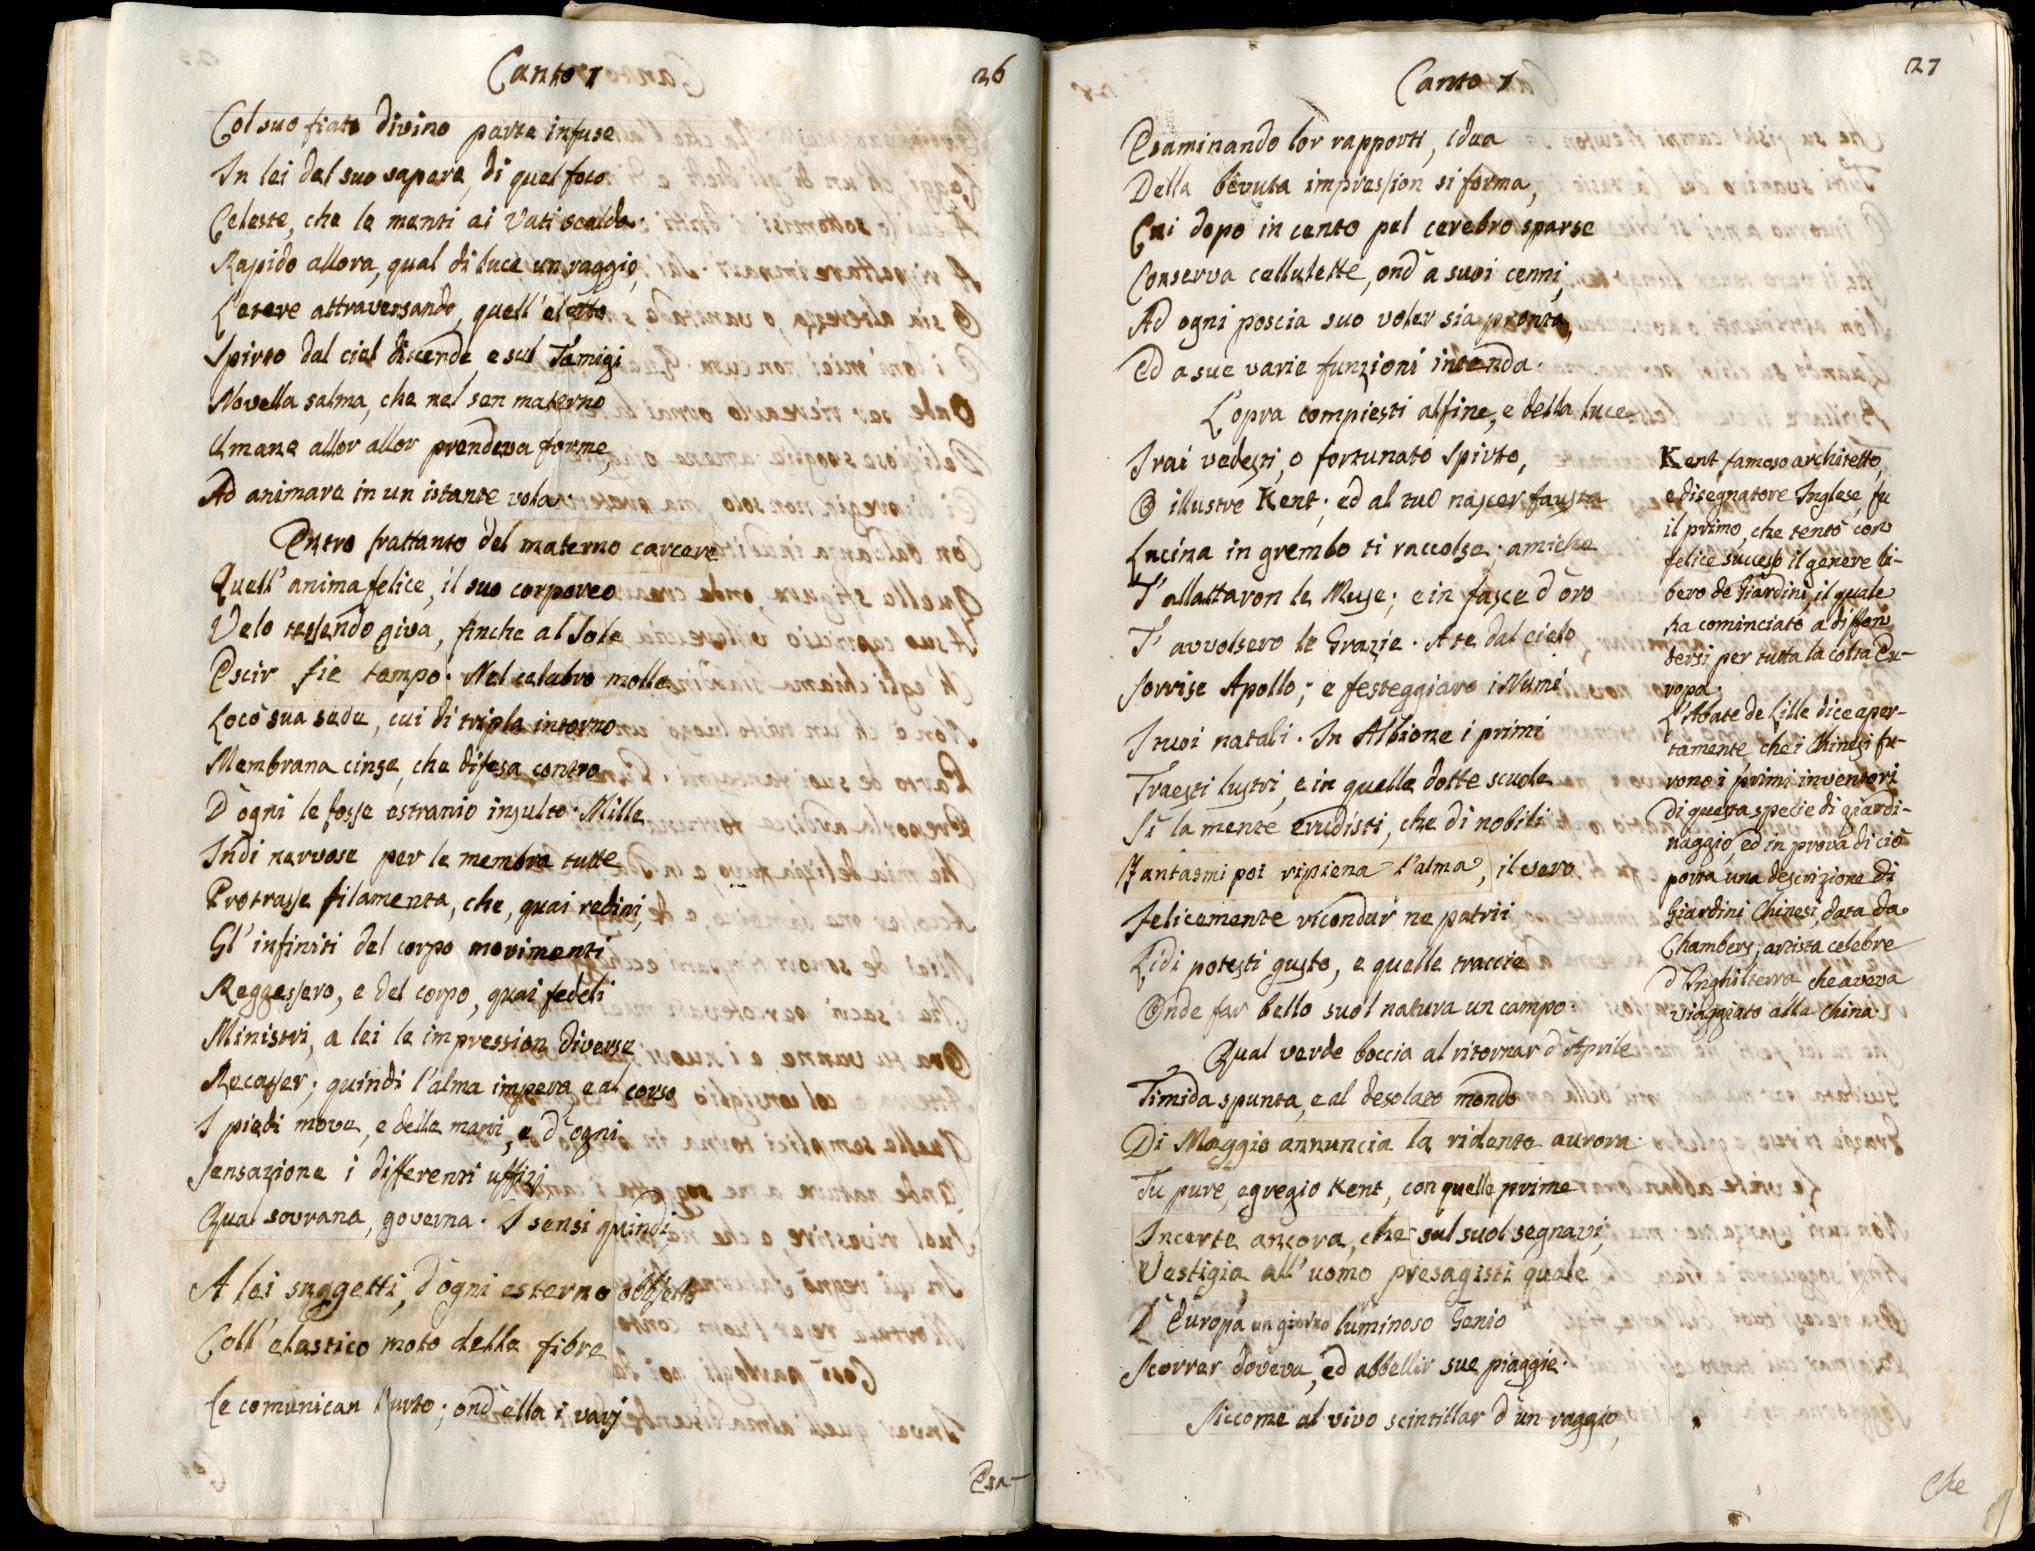 Canto 1
26
Col suo fiato divino parte infuse
In lei del suo sapere, di quel foco
Celeste, che le menti ai Vati scalda.
Rapido allora, qual di luce un raggio,
L'etere attraversando, quell'eletto
Spirto dal ciel discende, e sul Tamigi
Novella salma, che nel sen materno
Umane allor allor prendeva forme,
Ad animare in un istante vola.
Entro frattanto del materno carcere
Quell'anima felice, il suo corporeo
Velo tessendo giva, finche al Sole
Escir fie tempo. Nel celabro molle
Locò sua sede, cui di tripla intorno
Membrana cinse, che difesa contro
D'ogni le fosse estranio insulto. Mille
Indi nervose per le membra tutte
Protrasse filamenta, che, quai redini,
Gl'infiniti del corpo movimenti
Reggessero, e del corpo, quai fedeli
Ministri, a lei le impression diverse
Recasser; quindi l'alma impera, e al corso
I piedi move, e delle mani, e d'ogni
Sensazione i differenti uffizj
Qual sovrana, governa. I sensi quindi,
A lei suggetti, d'ogni esterno obbjetto
Coll'elastico moto delle fibre
Le comunican l'urto; ond'ella i varj
Esa-
Canto 1
27
Esaminando lor rapporti, idea
Della bevuta impression si forma,
Cui dopo in cento pel cerebro sparse
Conserva cellulette, ond'a suoi cenni,
Ad ogni poscia suo voler sia pronta,
Ed a sue varie funzioni intenda.
L'opra compiesti alfine, e della luce
I rai vedesti, o fortunato Spirto,
O illustre Kent; ed al tuo nascer fausta
Lucina in grembo ti raccolse; amiche
T'allattaron le Muse; e in fasce d'oro
T'avvolsero le Grazie. A te dal cielo
Sorrise Apollo; e festeggiaro i Numi
I tuoi natali. In Albione i primi
Traesti lustri, e in quelle dotte scuole
Sì la mente erudisti, che di nobili
Fantasmi poi ripiena l'alma, il vero
Felicemente ricondur ne patrii
Lidi potesti gusto, e quelle traccie
Onde far bello suol natura un campo.
Qual verde boccia al ritornar d'Aprile
Timida spunta, e al desolato mondo
Di Maggio annuncia la ridente aurora.
Tu pure, egregio Kent, con quelle prime
Incerte ancora, che sul suol segnavi,
Vestigia, all'uomo presagisti quale
D'Europa un giorno luminoso Genio
Scorrer doveva, ed abbellir sue piaggie.
Siccome al vivo scintillar d'un raggio,
Kent famoso architetto,
e disegnatore Inglese, fu
il primo, che tentò con
felice successo il genere li-
bero de Giardini, il quale
ha cominciato a diffon
dersi per tutta la colta Eu-
ropa.
L'Abate de Lille dice aper-
tamente, che i Chinesi fu-
rono i primi inventori
di questa specie di giardi-
naggio, ed in prova di ciò
porta una descrizione di
Giardini Chinesi, data da
Chambers, artista celebre
d'Inghilterra che aveva
viaggiato alla China.
Che